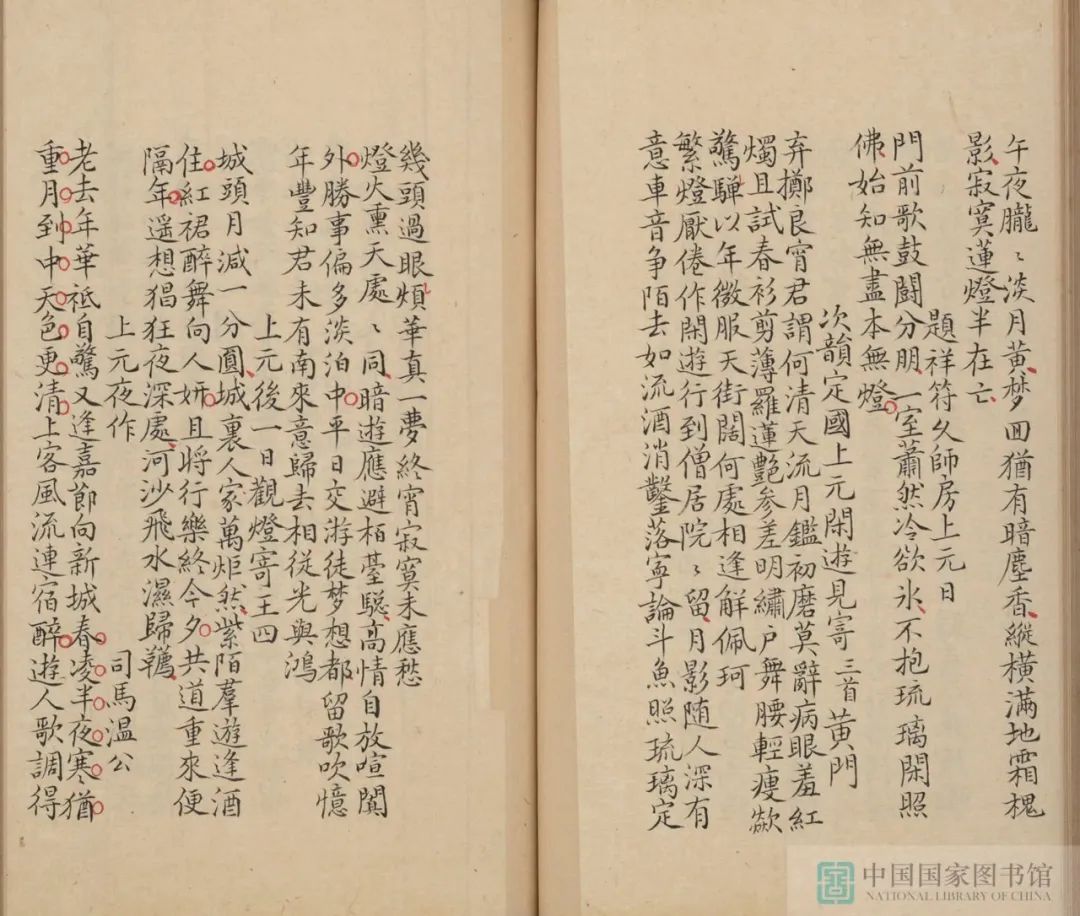 午夜朧〻淡月黄梦回猶有暗塵香縱橫滿地霜槐
影寂寞蓮燈半在亡
題祥符久師房上元日
門前歌鼓鬪分朋一室蕭然冷欲氷不抱琉璃閑照
佛始知無盡本無燈
次韻定國上元閑遊見寄 三首黄門
弃擲良宵君謂何清天流月鑑初磨莫辭病眼羞紅
燭且試春衫剪薄羅蓮艷参差明繡户舞腰輕瘦
驚騨以年微服天街闊何處相逢解佩珂
繁燈厭倦作閑遊行到僧居院〻留月影随人深有
意車音争陌去如流酒消鑿落寧論斗魚照琉璃定
幾頭過眼華真一夢終宵寂寞未應愁
燈火熏天處〻同暗遊應避栢䑓驄高情自放喧闐
外勝事偏多淡泊中平日交游徒梦想都留歌吹憶
年豐知君未有南來意歸去相從光與鴻
上元後一日觀燈寄王四
城頭月減一分圓城裏人家萬炬然紫陌羣遊逢酒
住紅裙醉舞向人妍且將行樂終今夕共道重來便
隔年遥想猖狂夜深處河沙飛水濕歸韉
上元夜作 司馬温公
老去年華祗自驚又逢嘉節向新城春凌半夜寒猶
重月到中天色更清上客風流連宿醉遊人歌調得
中国国家图书馆
NATIONAL LIBRARY OF CHINA